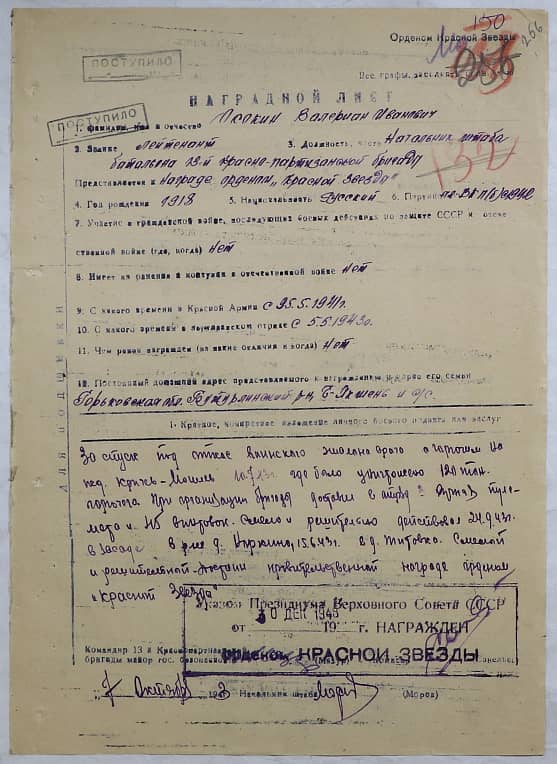 150
Орденом Красной Звезды
256
Все графы
ПОСТУПИЛО
НАГРАДНОЙ ЛИСТ
ПОСТУПИЛО
1. Фамилия, имя и отчество Осокин Валериан Иванович
2. Звание Лейтенант 3. Должность, часть Начальник штаба
батальона 13-й Красно-партизанской бригады
Представляется к Награде орденом „Красной Звезда"
4. Год рождения 1918 5. Национальность Русский 6. Партийность
7. Участие в гражданской войне, последующих боевых действиях по защите СССР и отече
ственной войне (где, когда) Нет
8. Имеет ли ранения и контузии в отечественной войне Нет
9. С какого времени в Красной Армии с 25.5.1941г.
10. С какого времени в партизанском отряде с 5.5.1943г.
11. Чем ранее награжден (за какие отличия и когда) Нет
ДЛЯ ПОДШИВКИ
12. Постоянный домашний адрес представляемого к награждению и адрес его семьи
Горьковская обл. Бутурлинский р-н, Б-Якшень с/с.
1. Краткое, конкретное изложение личного боевого подвига или заслуг
За спуск под откос воинского эшелона врага с горючим на
ж.д. Кричев-Могилев где было уничтожено 120 тон.
горючего. При организации бригады доставил в отряд пуле-
мета и винтовок. Смело и решительно действовал 24.9.43г.
в засаде в р-не д. 15.6.43г. в д. Титовка.
и решительной правительственной награде орденом
„Красной Звезда"
Указом Президиума Верховного Совета СССР
от 30 ДЕК 1943 19 г. НАГРАЖДЕН
орденом КРАСНОЙ ЗВЕЗДЫ
Командир 13 й Краснопартизанской
бригады майор гос. безопасности
„7" Октября 1943 Начальник штаба (Моров)